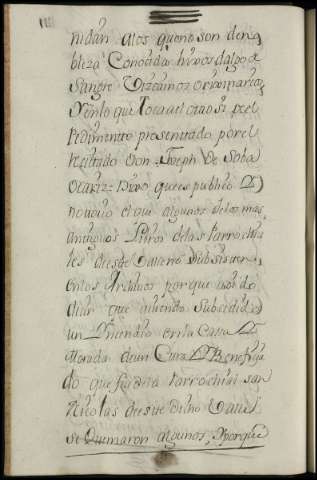 nidan alos queno son de no
bleza Conocida hixos dalgo de
Sangre Vizcainos originarios
Yenlo que toca al otro si de el
Pedimento presentado por el
recitado Don Joseph de Soba
Ocariz = Dixo que es publico Y
notorio el qui algunos delos mas
antiguos Libros delas Parrochia
les deeste Valleno Subsisten
enlos Archivos por que aoido
dicir que aviendo Subcedido
un Yncendio en la Casa de
Morada de un Cura Y Benefizia
do que fue de la Parrochial san
Nicolas de este dicho Valle
se Quemaron algunos, Y porque